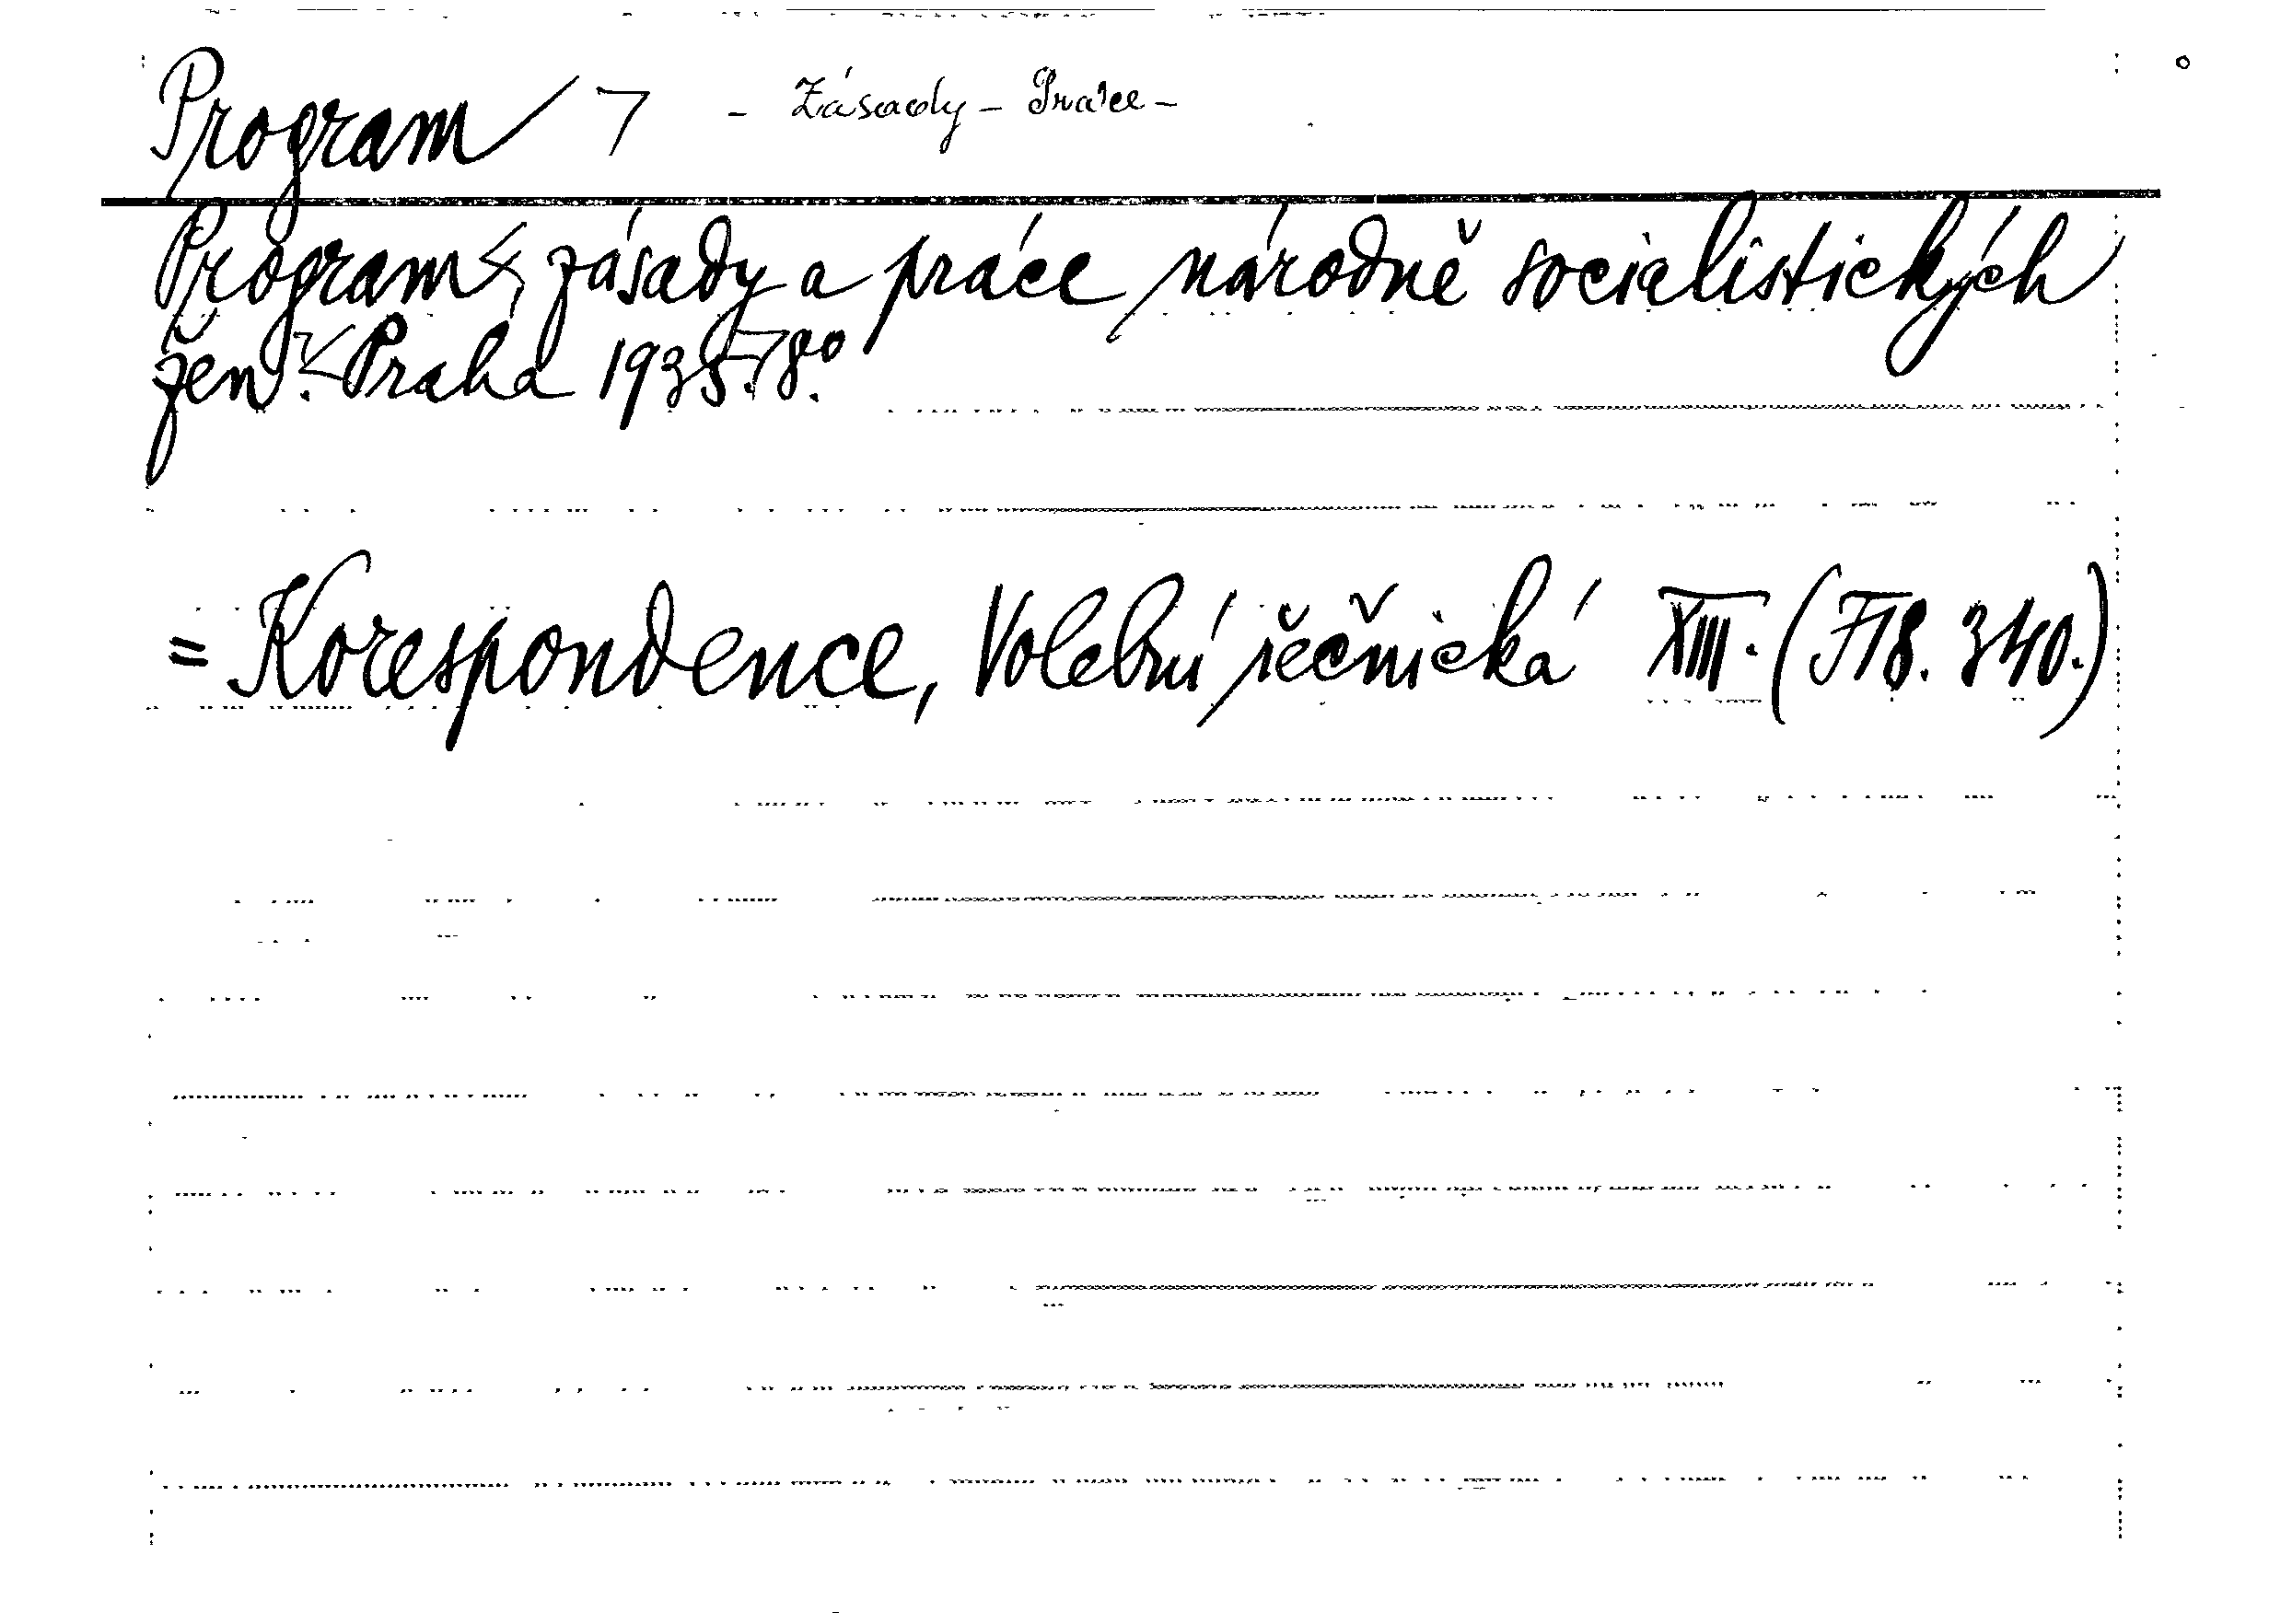 Program 7 - Zásady - Práce -
Program, zásady a práce národně socialistických
žen. Praha 1935. 8°.
= Korespondence, Volební řečnická XIII. (F 18. 340.)